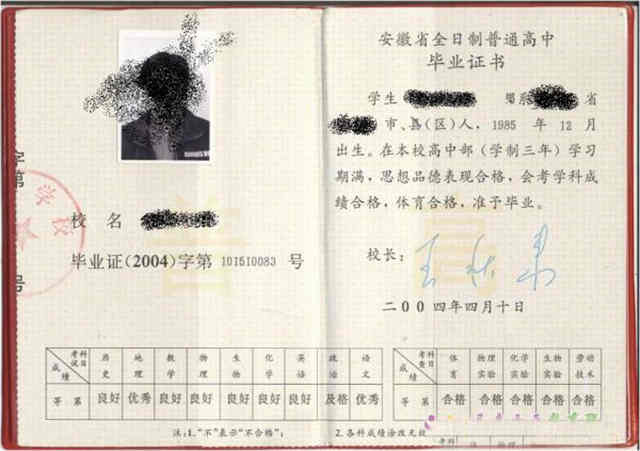 校名
毕业证(2004)字第 101510083 号
安徽省全日制普通高中
毕业证书
学生 系 省
市、县(区)人，1985 年 12 月
出生。在本校高中部(学制三年)学习
期满，思想品德表现合格，会考学科成
绩合格，体育合格，准予毕业。
校长：
二00四年四月十日
考试科目 历史 地理 数学 物理 生物 化学 英语 政治 语文
成绩
等第 良好 优秀 良好 良好 良好 良好 良好 及格 优秀
考查科目 体育 物理实验 化学实验 生物实验 劳动技术
成绩
等第 合格 合格 合格 合格 合格
注：1."不"表示"不合格"； 2.各科成绩涂改无效
字第
号
学校
普
高